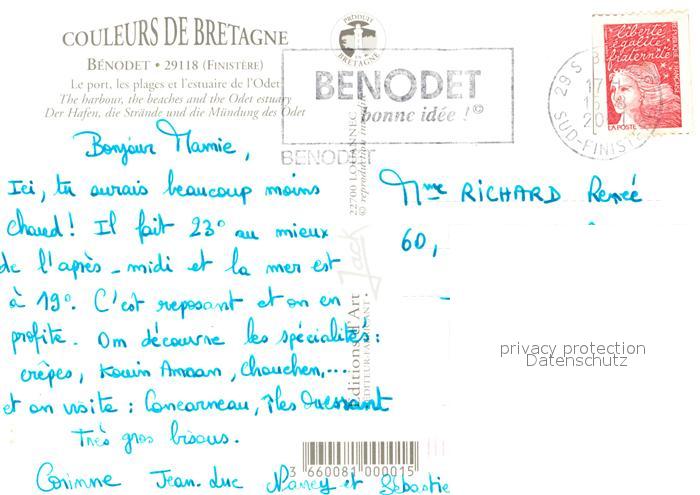 COULEURS DE BRETAGNE
BÉNODET • 29118 (FINISTÈRE)
Le port, les plages et l'estuaire de l'Odet
The harbour, the beaches and the Odet estuary
Der Hafen, die Strände und die Mündung des Odet
PRODUIT EN BRETAGNE
BENODET
bonne idée ! ©
BENODET
29 S
SUD-FINIST
liberté
égalité
fraternité
REPUBLIQUE FRANÇAISE
LA POSTE
22700 LOUANNEC
© reproduction interdite
Jack
Éditions d'Art
ÉDITEUR-FABRICANT
Bonjour Mamie,
Ici, tu aurais beaucoup moins
chaud ! Il fait 23° au mieux
de l'après-midi et la mer est
à 19°. C'est reposant et on en
profite. On découvre les spécialités :
crêpes, Kouin Amaan, chouchen,...
et on visite : Concarneau, îles Ouessant
Très gros bisous.
Corinne Jean-Luc Nancy et Sébastie
Mme RICHARD Renée
60,
privacy protection
Datenschutz
3 660081 000015